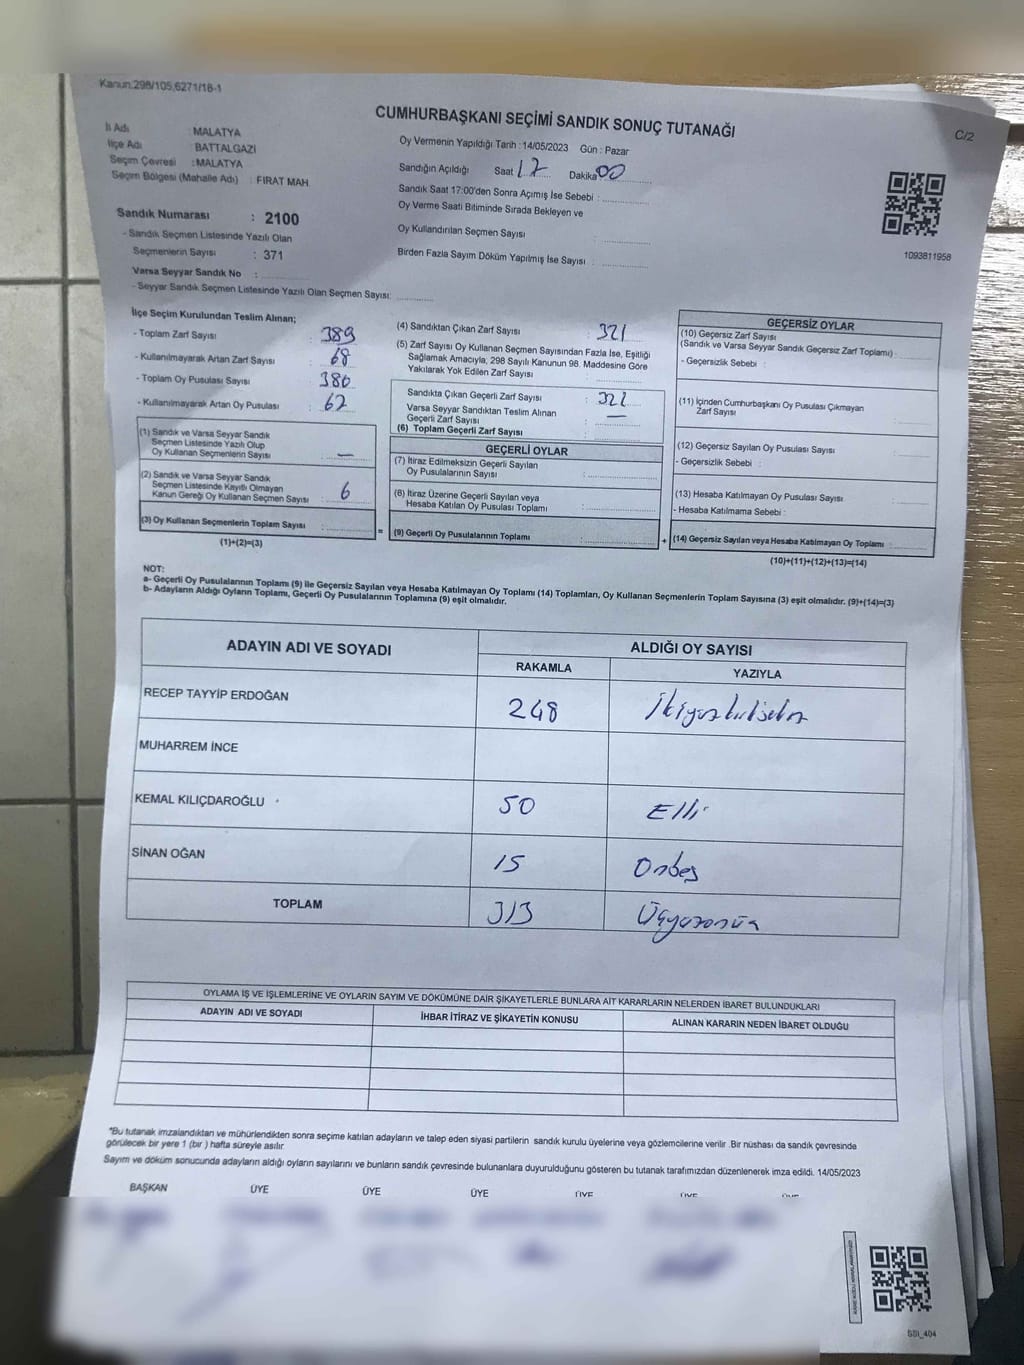 Kanun.298/105,6271/18-1
CUMHURBAŞKANI SEÇİMİ SANDIK SONUÇ TUTANAĞI
C/2
İl Adı : MALATYA
İlçe Adı : BATTALGAZİ
Seçim Çevresi : MALATYA
Seçim Bölgesi (Mahalle Adı) : FIRAT MAH.
Oy Vermenin Yapıldığı Tarih : 14/05/2023 Gün : Pazar
Sandığın Açıldığı Saat 17 Dakika 00
Sandık Saat 17:00'den Sonra Açımış İse Sebebi :
Oy Verme Saati Bitiminde Sırada Bekleyen ve
Oy Kullandırılan Seçmen Sayısı :
Birden Fazla Sayım Döküm Yapılmış İse Sayısı :
1093811958
Sandık Numarası : 2100
- Sandık Seçmen Listesinde Yazılı Olan
Seçmenlerin Sayısı : 371
Varsa Seyyar Sandık No :
- Seyyar Sandık Seçmen Listesinde Yazılı Olan Seçmen Sayısı:
İlçe Seçim Kurulundan Teslim Alınan;
- Toplam Zarf Sayısı : 389
- Kullanılmayarak Artan Zarf Sayısı : 68
- Toplam Oy Pusulası Sayısı : 380
- Kullanılmayarak Artan Oy Pusulası : 62
(1) Sandık ve Varsa Seyyar Sandık
Seçmen Listesinde Yazılı Olup
Oy Kullanan Seçmenlerin Sayısı : —
(2) Sandık ve Varsa Seyyar Sandık
Seçmen Listesinde Kayıtlı Olmayan
Kanun Gereği Oy Kullanan Seçmen Sayısı : 6
(3) Oy Kullanan Seçmenlerin Toplam Sayısı :
(1)+(2)=(3)
(4) Sandıktan Çıkan Zarf Sayısı : 321
(5) Zarf Sayısı Oy Kullanan Seçmen Sayısından Fazla İse, Eşitliği
Sağlamak Amacıyla; 298 Sayılı Kanunun 98. Maddesine Göre
Yakılarak Yok Edilen Zarf Sayısı :
Sandıkta Çıkan Geçerli Zarf Sayısı : 321
Varsa Seyyar Sandıktan Teslim Alınan
Geçerli Zarf Sayısı : —
(6) Toplam Geçerli Zarf Sayısı :
GEÇERLİ OYLAR
(7) İtiraz Edilmeksizin Geçerli Sayılan
Oy Pusulalarının Sayısı :
(8) İtiraz Üzerine Geçerli Sayılan veya
Hesaba Katılan Oy Pusulası Toplamı :
(9) Geçerli Oy Pusulalarının Toplamı :
GEÇERSİZ OYLAR
(10) Geçersiz Zarf Sayısı
(Sandık ve Varsa Seyyar Sandık Geçersiz Zarf Toplamı) :
- Geçersizlik Sebebi :
(11) İçinden Cumhurbaşkanı Oy Pusulası Çıkmayan
Zarf Sayısı
(12) Geçersiz Sayılan Oy Pusulası Sayısı :
- Geçersizlik Sebebi :
(13) Hesaba Katılmayan Oy Pusulası Sayısı
- Hesaba Katılmama Sebebi :
(14) Geçersiz Sayılan veya Hesaba Katılmayan Oy Toplamı :
(10)+(11)+(12)+(13)=(14)
NOT:
a- Geçerli Oy Pusulalarının Toplamı (9) ile Geçersiz Sayılan veya Hesaba Katılmayan Oy Toplamı (14) Toplamları, Oy Kullanan Seçmenlerin Toplam Sayısına (3) eşit olmalıdır. (9)+(14)=(3)
b- Adayların Aldığı Oyların Toplamı, Geçerli Oy Pusulalarının Toplamına (9) eşit olmalıdır.
ADAYIN ADI VE SOYADI ALDIĞI OY SAYISI
RAKAMLA YAZIYLA
RECEP TAYYİP ERDOĞAN 248
MUHARREM İNCE
KEMAL KILIÇDAROĞLU 50 Elli
SİNAN OĞAN 15 Onbeş
TOPLAM 313 Üçyüzonüç
OYLAMA İŞ VE İŞLEMLERİNE VE OYLARIN SAYIM VE DÖKÜMÜNE DAİR ŞİKAYETLERLE BUNLARA AİT KARARLARIN NELERDEN İBARET BULUNDUKLARI
ADAYIN ADI VE SOYADI İHBAR İTİRAZ VE ŞİKAYETİN KONUSU ALINAN KARARIN NEDEN İBARET OLDUĞU
*Bu tutanak imzalandıktan ve mühürlendikten sonra seçime katılan adayların ve talep eden siyasi partilerin sandık kurulu üyelerine veya gözlemcilerine verilir .Bir nüshası da sandık çevresinde
görülecek bir yere 1 (bir ) hafta süreyle asılır.
Sayım ve döküm sonucunda adayların aldığı oyların sayılarını ve bunların sandık çevresinde bulunanlara duyurulduğunu gösteren bu tutanak tarafımızdan düzenlenerek imza edildi. 14/05/2023
BAŞKAN ÜYE ÜYE ÜYE ÜYE ÜYE ÜYE
SSI_404